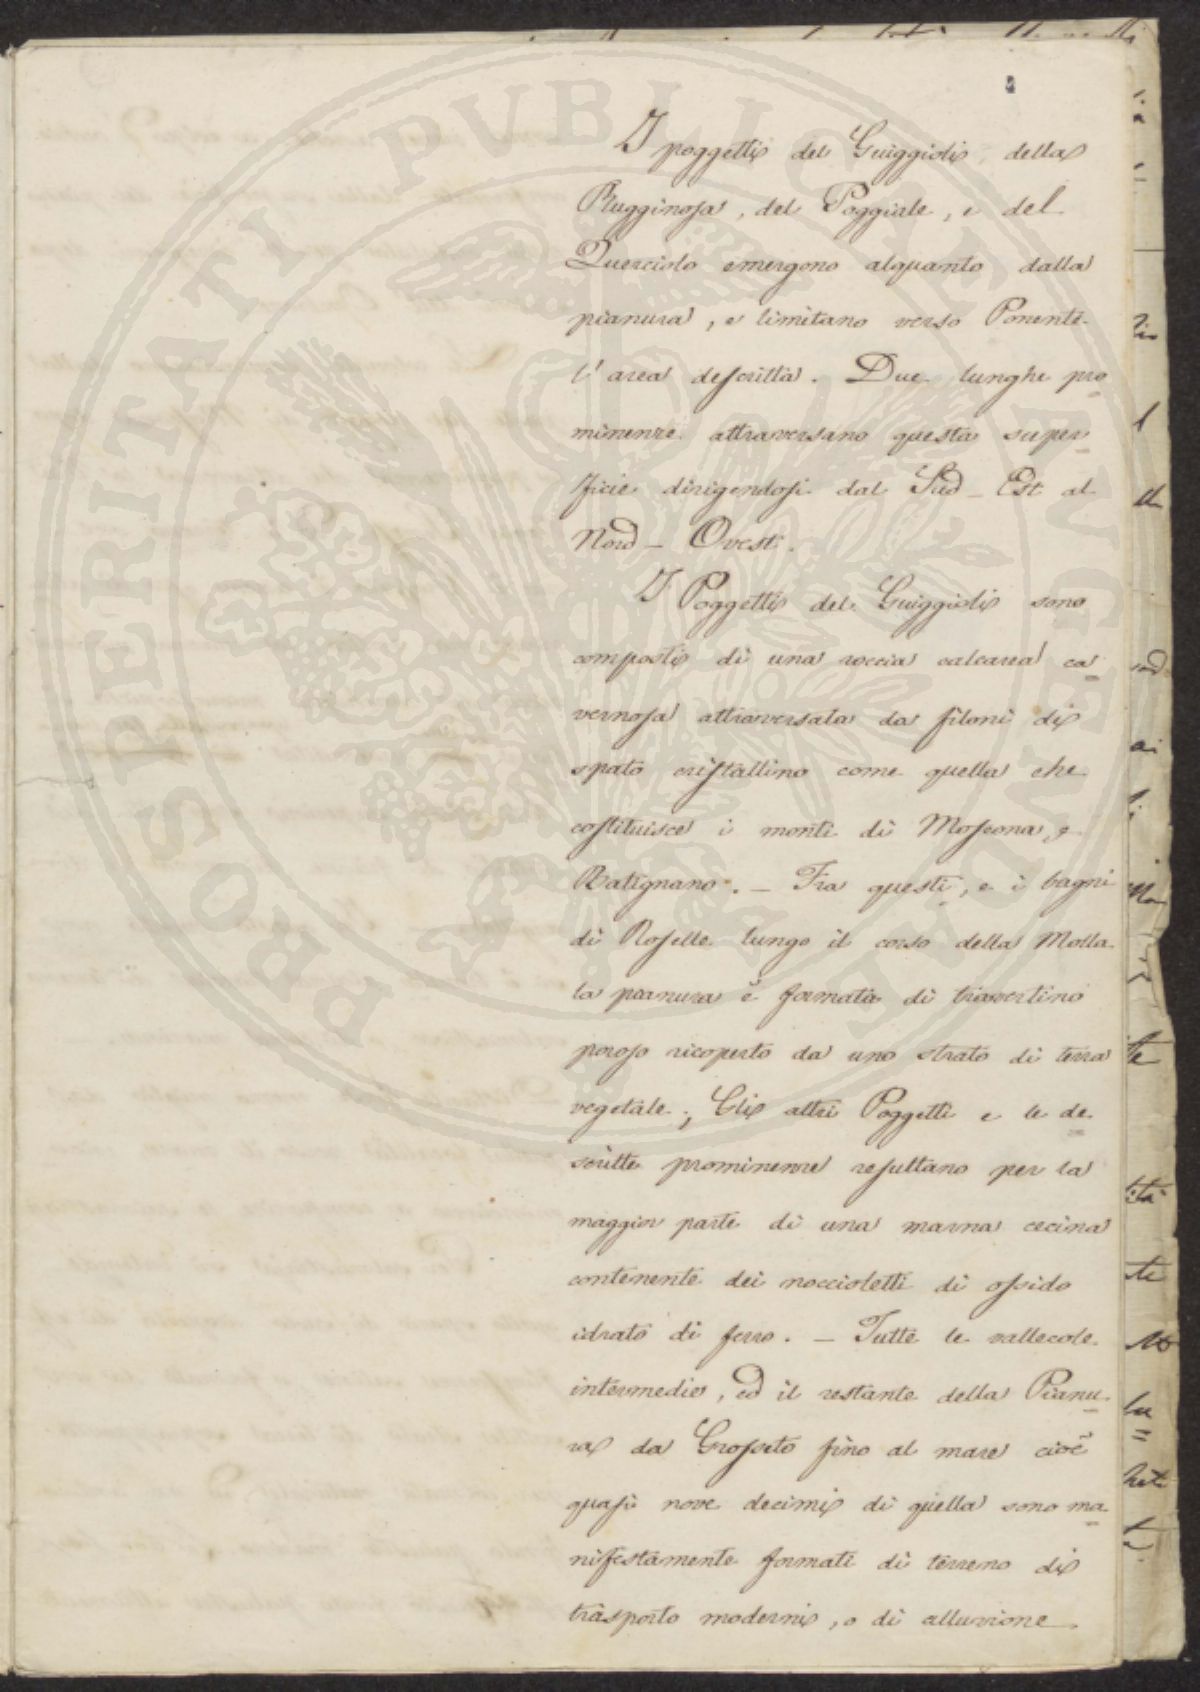 I poggetti del Guiggioli, della
Rugginosa, del Poggiale, e del
Querciolo emergono alquanto dalla
pianura, e limitano verso Ponente
l'area descritta. Due lunghe pro
minenze attraversano questa super
ficie dirigendosi dal Sud - Est al
Nord - Ovest.
I Poggetti del Guiggioli sono
composti di una roccia calcarea ca
vernosa attraversata da filoni di
spato cristallino come quella che
costituisce i monti di Moscona, e
Batignano. - Fra questi, e i bagni
di Roselle lungo il corso della Molla
la pianura è formata di travertino
poroso ricoperto da uno strato di terra
vegetale; Gli altri Poggetti e le de
scritte prominenze resultano per la
maggior parte di una marna cecina
contenente dei noccioletti di ossido
idrato di ferro. - Tutte le vallecole
intermedie, ed il restante della Pianu
ra da Grosseto fino al mare cioè
quasi nove decimi di quella sono ma
nifestamente formati di terreno di
trasporto moderni, o di alluvione
PROSPERITATI PUBLICAE AUGENDAE